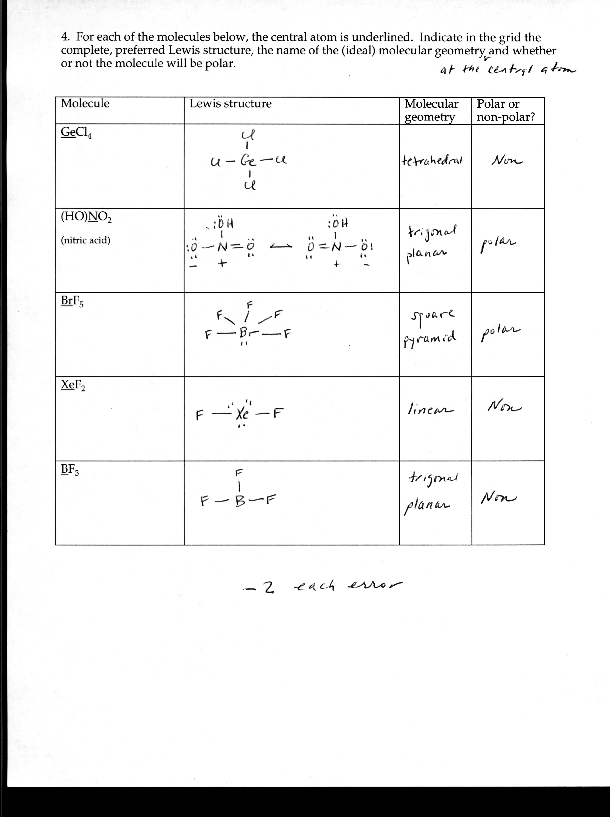 4. For each of the molecules below, the central atom is underlined. Indicate in the grid the
complete, preferred Lewis structure, the name of the (ideal) molecular geometry and whether
or not the molecule will be polar.
at the central atom
Molecule Lewis structure Molecular geometry Polar or non-polar?
GeCl₄
Cl
Cl – Ge – Cl
Cl
tetrahedral Non
(HO)NO₂
(nitric acid)
:ÖH :ÖH
:Ö – N = Ö Ö = N – Ö:
– + + –
trigonal
planar
polar
BrF₅
F
F F
F – Br – F
square
pyramid
polar
XeF₂
F – Xe – F
linear Non
BF₃
F
F – B – F
trigonal
planar
Non
– 2 each error